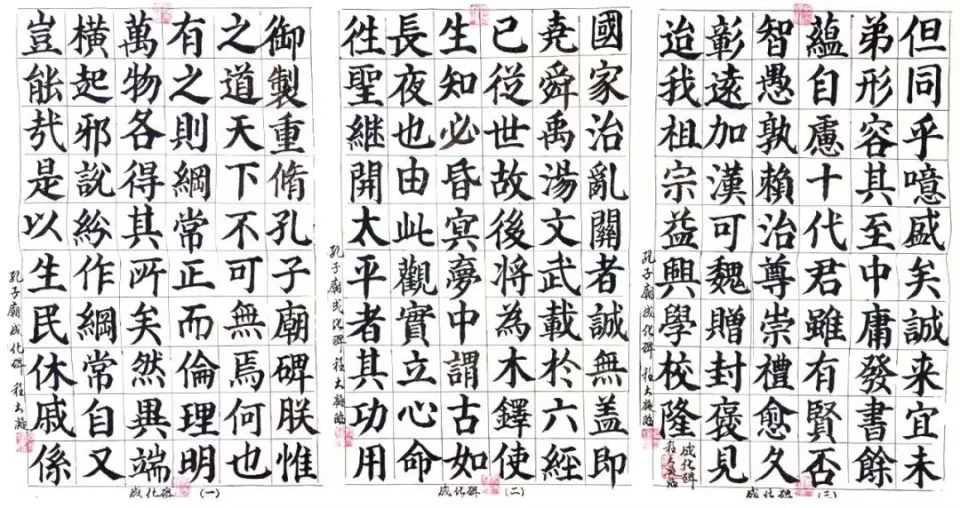 御製重脩孔子廟碑朕惟
之道天下不可無焉何也
有之則綱常正而倫理明
萬物各得其所矣然異端
橫起邪說紛作綱常自又
豈能哉是以生民休戚係
孔子廟成化碑
成化碑(一)
國家治亂關者誠無盖即
堯舜禹湯文武載於六經
已從世故後將為木鐸使
生知必昏冥夢中謂古如
長夜也由此觀實立心命
徃聖継開太平者其功用
孔子廟成化碑
成化碑(二)
但同乎噫戚矣誠来宜未
弟形容其至中庸發書餘
蘊自慮十代君雖有賢否
智愚孰賴治尊崇禮愈久
彰遠加漢可魏贈封褒見
迨我祖宗益興學校隆
成化碑
孔子廟成化碑
成化碑(三)